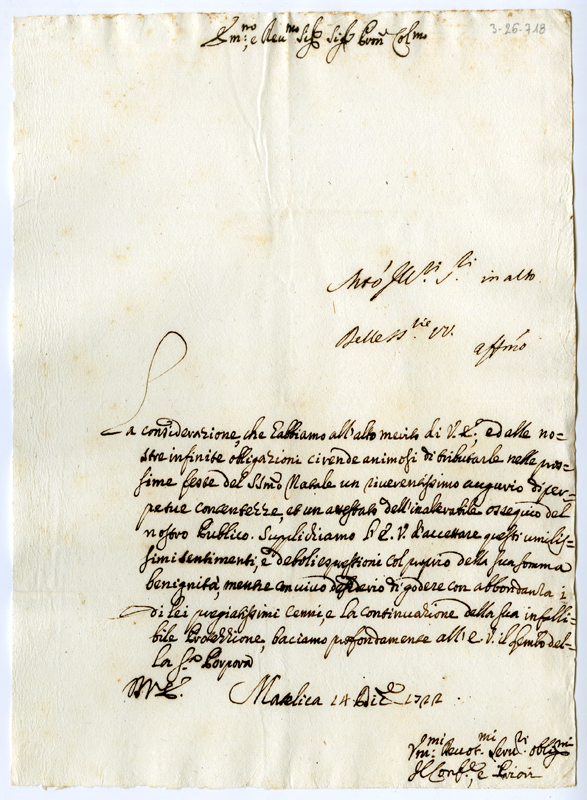 3-26-718
Em:no e Reu:mo Sig:r Sig:r Pron Col:mo
in alto
aff:mo
La considerazione, che habbiamo all'alto merito di V. E., ed alle no-
stre infinite obligazioni ci rende animosi di tributarle nelle pros-
sime feste del S:mo Natale un riverentissimo augurio di per-
petue contentezze, et un attestato dell'inalterabile ossequio del
nostro Publico. Suplichiamo l'E. V. d'accettare questi umilis-
simi sentimenti, e deboli espressioni col puro della sua somma
benignità, mentre con vivo desiderio di godere con abbondanza i
di lei pregiatissimi cenni, e la continuazione della sua infalli-
bile Protezzione, baciamo profondamente all'E. V. il lembo del-
la S:ra Porpora
D. V. E. Matelica 14 Dic:e 1722
V:mi Deuot:mi Seru:ri oblig:mi
Il Conf:re, e Priori